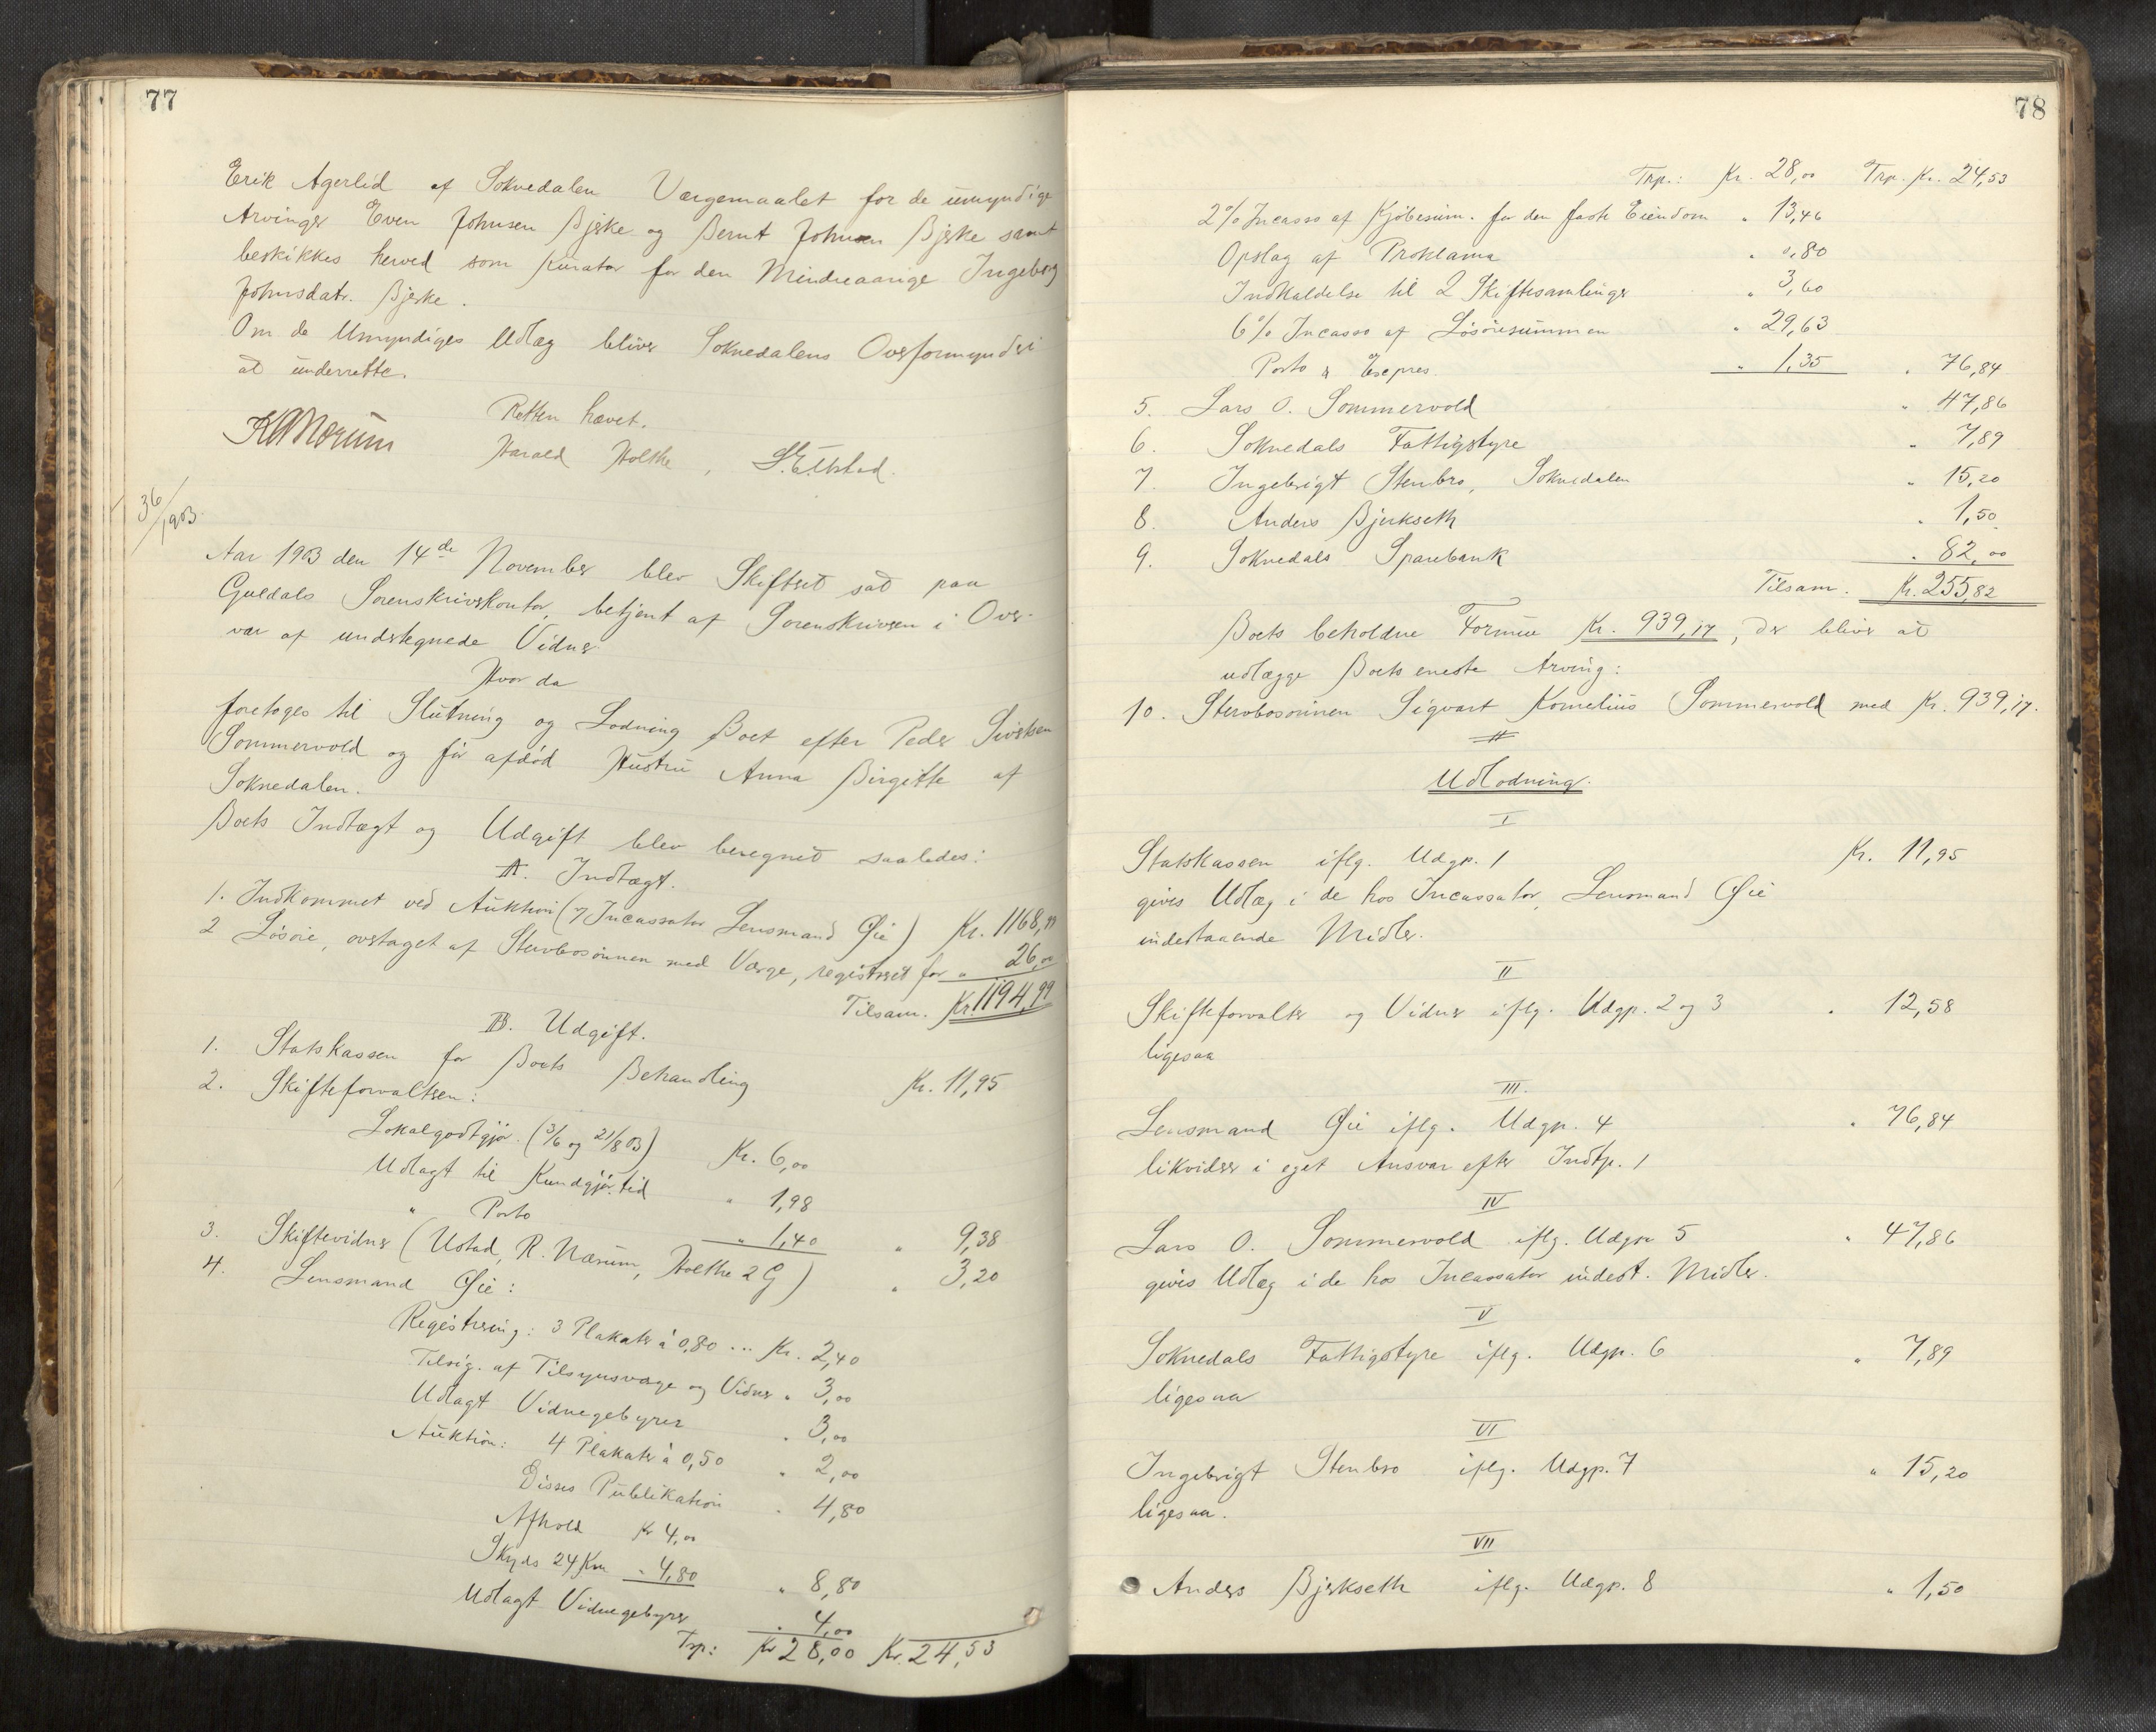 77
Erik Agerlid af Soknedalen Værgemaalet for de umyndige
Arvinger Even Johnsen Bjerke og Bernt Johnsen Bjerke samt
beskikkes herved som Kurator for den Mindreaarige Ingeborg
Johnsdatr. Bjerke.
Om de Umyndiges Udlæg bliver Soknedalens Overformynderi
at underrette.
Retten hævet.
Harald Holthe,
36/1903.
Aar 1903 den 14de November blev Skifteret sat paa
Guldals Sorenskriverkontor, betjent af Sorenskriveren i Over-
vær af undertegnede Vidner
Hvor da
foretoges til Slutning og Lodning Boet efter Peder Sivertsen
Sommervold og før afdød Hustru Anna Birgitte af
Soknedalen.
Boets Indtægt og Udgift blev beregnet saaledes:
A. Indtægt.
1. Indkommet ved Auktion (∕ Incassator Lensmand Øie) Kr. 1168,99
2 Løsøre, overtaget af Stervbosønnen med Værge, registreret for " 26,00
Tilsam. Kr. 1194,99
B. Udgift.
1. Statskassen for Boets Behandling Kr. 11,95
2. Skifteforvalteren:
Lokalgodtgjør. (3/6 og 21/8 03) Kr. 6,00
Udlagt til Kundgjør.tid " 1,98
" Porto " 1,40 " 9,38
3. Skiftevidner (Ustad, R. Nærum, Holthe 2 G) " 3,20
4. Lensmand Øie:
Registrering: 3 Plakater à 0,80 ... Kr. 2,40
Tilsig. af Tilsynsværge og Vidner " 3,00
Udlagt Vidnegebyrer " 3,00
Auktion: 4 Plakater à 0,50 " 2,00
Disses Publikation " 4,80
Afhold Kr 4,00
Skyds 24 Km " 4,80 " 8,80
Udlagt Vidnegebyrer " 4,00
Trp: Kr 28,00 Kr. 24,53
78
Trp.: Kr. 28,00 Trp. Kr. 24,53
2% Incasso af Kjøbesum. for den faste Eiendom " 13,46
Opslag af Proklama " 0,80
Indkaldelse til 2 Skiftesamlinger " 3,60
6% Incasso af Løsøresummen " 29,63
Porto & Expres. " 1,35 " 76,84
5. Lars O. Sommervold " 47,86
6. Soknedals Fattigstyre " 7,89
7. Ingebrigt Stenbro, Soknedalen " 15,20
8. Anders Bjerkseth " 1,50
9. Soknedals Sparebank " 82,00
Tilsam. Kr. 255,82
Boets beholdne Formue Kr. 939,17, der bliver at
udlægge Boets eneste Arving:
10. Stervbosønnen Sigvart Kornelius Sommervold med Kr. 939,17.
Udlodning.
I
Statskassen iflg. Udgp. 1 Kr. 11,95
gives Udlæg i de hos Incassator, Lensmand Øie
indestaaende Midler.
II
Skifteforvalter og Vidner iflg. Udgp. 2 og 3 " 12,58
ligesaa
III.
Lensmand Øie iflg. Udgp. 4 " 76,84
likviderer i eget Ansvar efter Indtp. 1
IV
Lars O. Sommervold iflg. Udgp 5 " 47,86
gives Udlæg i de hos Incassator indest. Midler.
V
Soknedals Fattigstyre iflg. Udgp. 6 " 7,89
ligesaa
VI
Ingebrigt Stenbro iflg. Udgp. 7 " 15,20
ligesaa.
VII
Anders Bjerkseth iflg. Udgp. 8 " 1,50